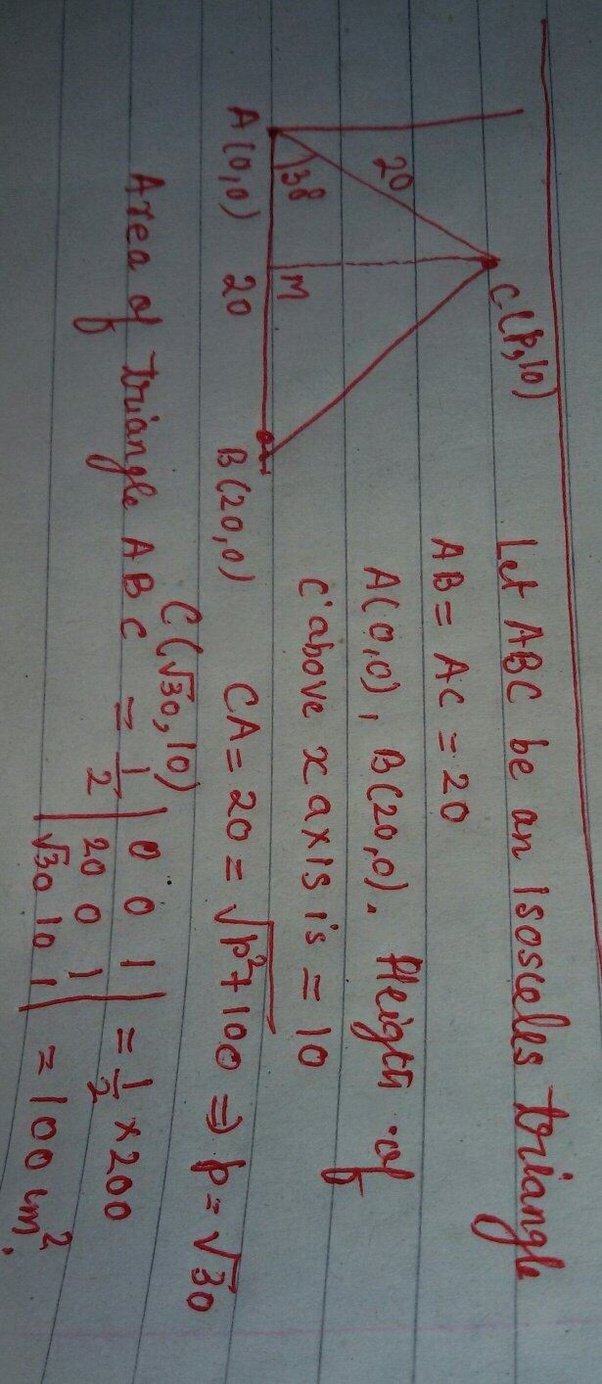 C(P,10)
20
38
M
A(0,0)
20
B(20,0)
Let ABC be an Isosceles triangle
AB = AC = 20
A(0,0), B(20,0). Heigth of
C above x axis is = 10
CA = 20 = √p²+100 ⇒ p = √30
C(√30,10)
Area of triangle ABC = 1/2 | 0 0 1 | = 1/2 × 200
20 0 1
√30 10 1 | = 100 cm².